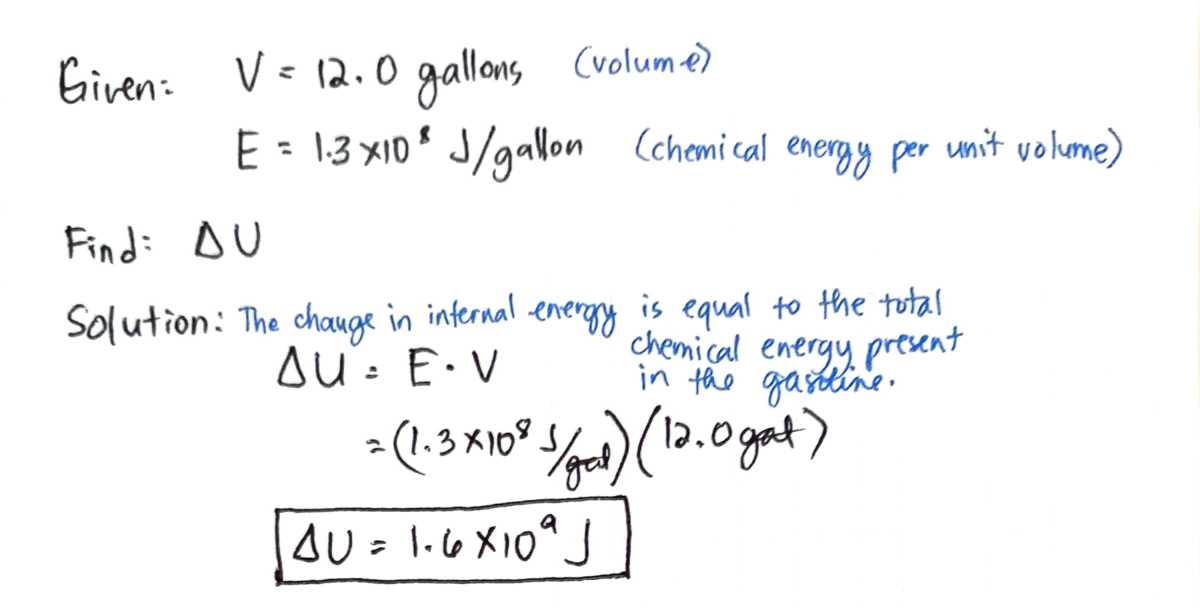 Given: V = 12.0 gallons (volume)
E = 1.3 ×10⁸ J/gallon (chemical energy per unit volume)
Find: ΔU
Solution: The change in internal energy is equal to the total
chemical energy present
in the gasoline.
ΔU = E · V
= (1.3 ×10⁸ J/gal)(12.0 gal)
ΔU = 1.6 ×10⁹ J